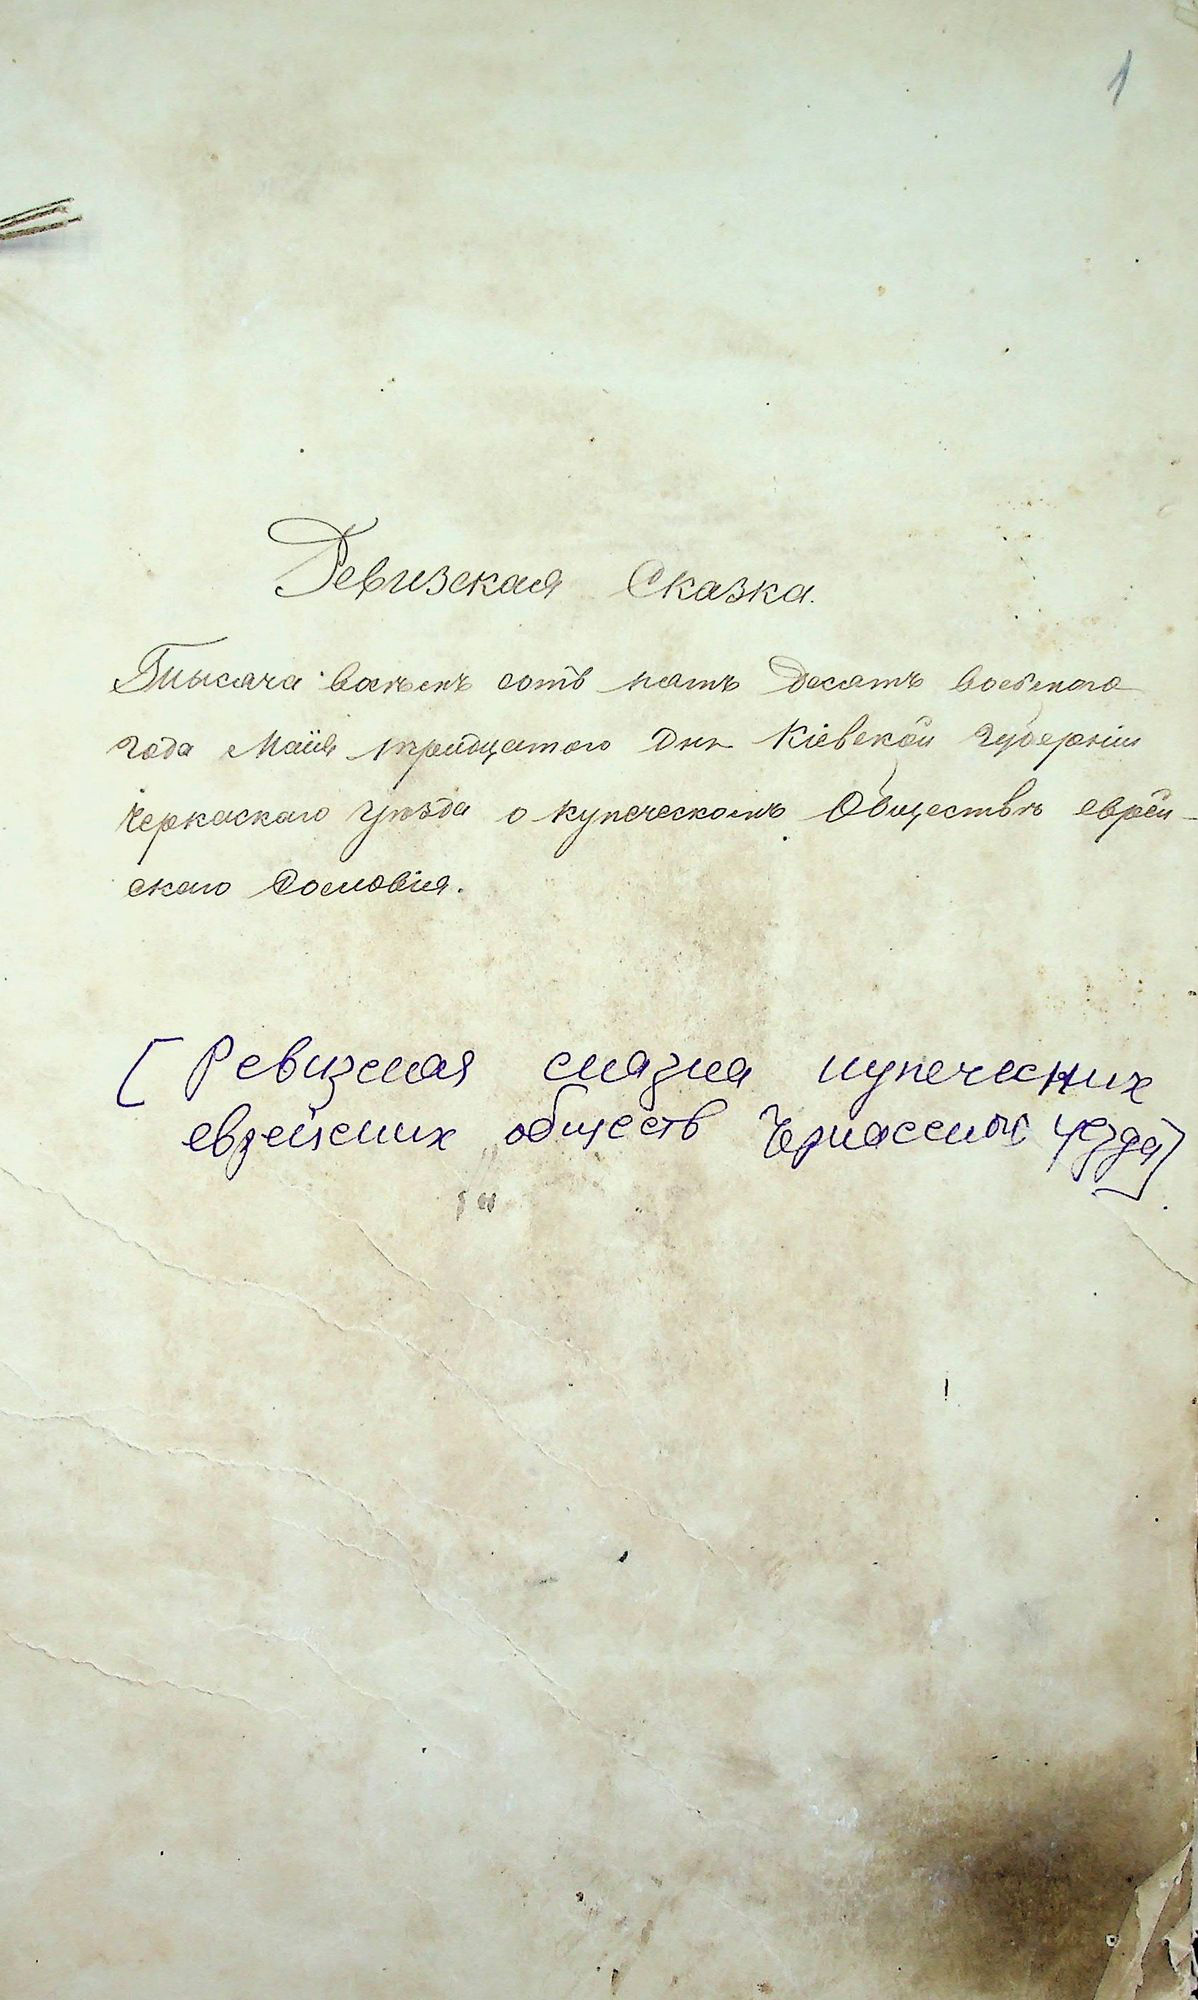 1
Ревизская Сказка.
Тысяча восемь сотъ пять десятъ восьмого
года Маія тридцатого дня Кіевской Губерніи
Черкаскаго Уѣзда о купеческомъ Обществѣ еврей-
скаго Сословія.
[Ревизская сказка купеческих
еврейских обществ Черкасского уезда]